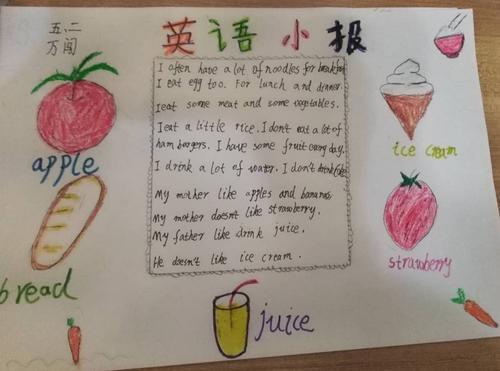 五、二
万闯
英语小报
I often have a lot of noodles for breakfast
I eat egg too. For lunch and dinner.
I eat some meat and some vegetables.
I eat a little rice. I don't eat a lot of
hamburgers. I have some fruit every day.
I drink a lot of water. I don't drink
My mother like apples and bananas
My mother doesn't like strawberry.
My father like drink juice.
He doesn't like ice cream.
apple
bread
juice
ice cream
strawberry